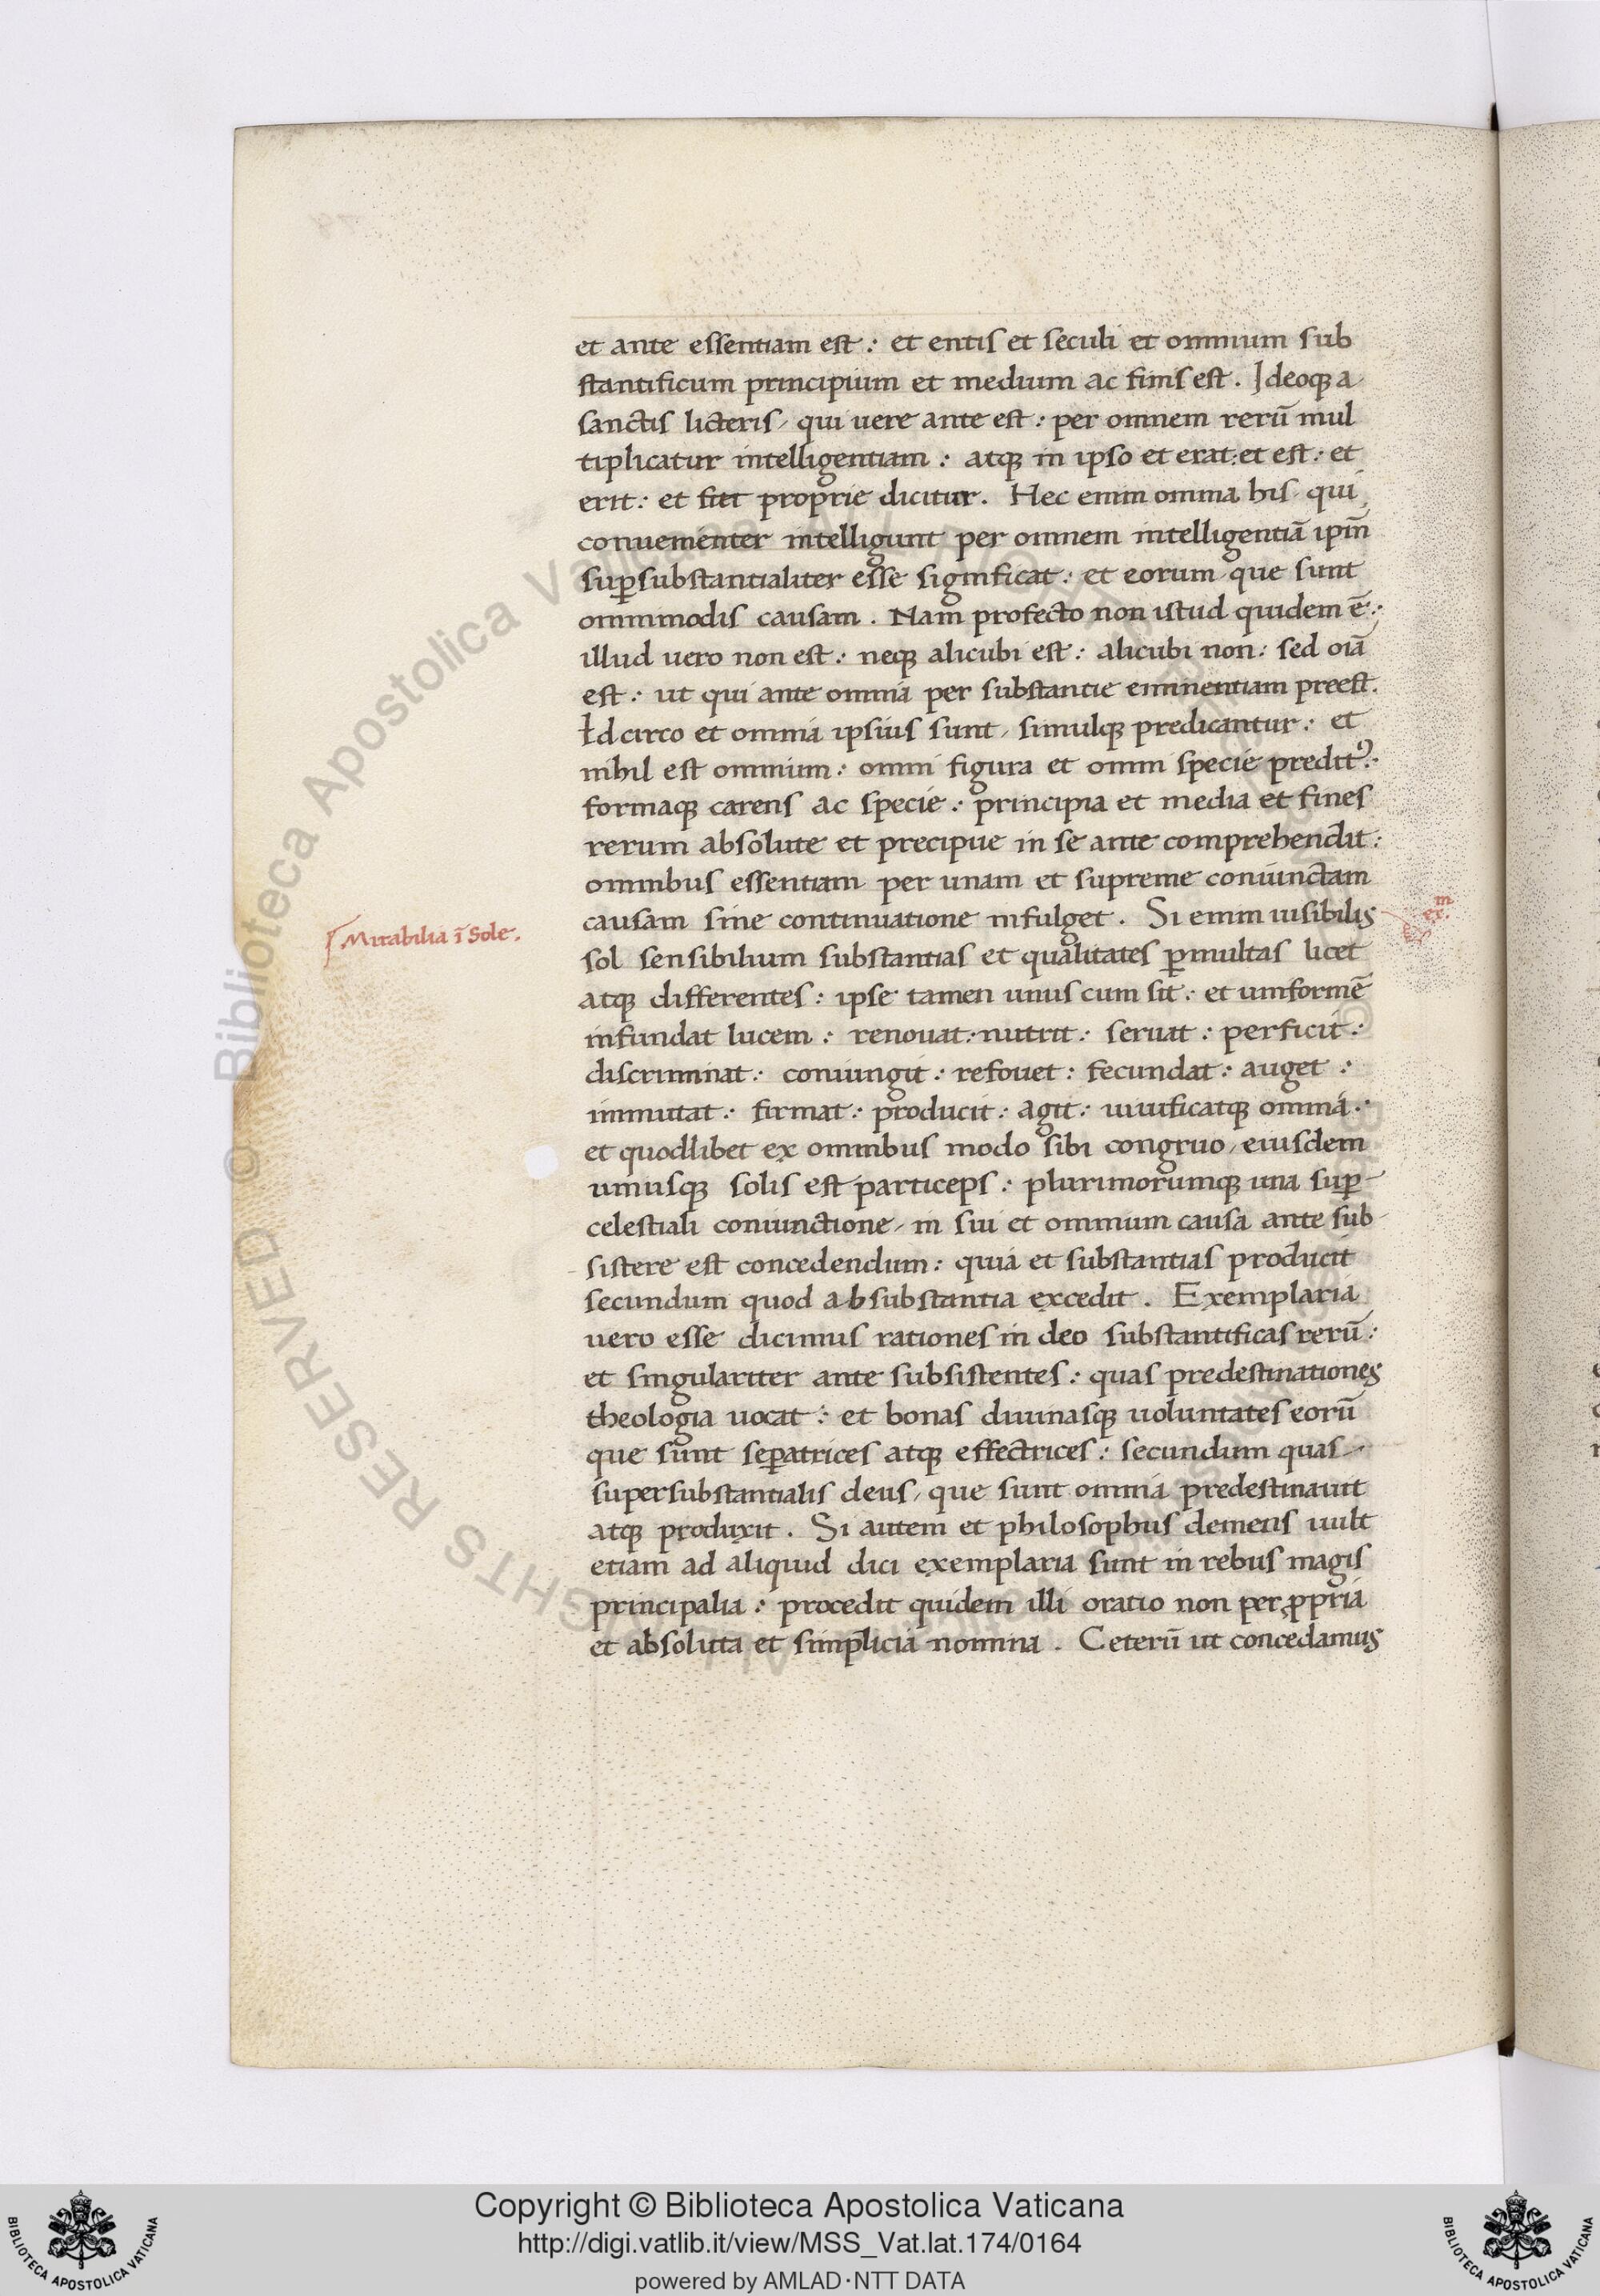 et ante essentiam est : et entis et seculi et omnium sub
stantificum principium et medium ac finis est . Ideoq; a
sanctis licteris , qui uere ante est : per omnem rerū mul
tiplicatur intelligentiam : atq; in ipso et erat : et est : et
erit : et fiet proprie dicitur . Hec enim omnia his , qui
conuenienter intelligunt per omnem intelligentiā ipm̄
suꝑsubstantialiter esse significat : et eorum que sunt
omnimodis causam . Nam profecto non istud quidem ē :
illud uero non est : neq; alicubi est : alicubi non : sed oīa
est : ut qui ante omnia per substantie eminentiam preest .
Idcirco et omnia ipsius sunt , simulq; predicantur : et
nihil est omnium : omni figura et omni specie preditꝰ :
formaq; carens ac specie : principia et media et fines
rerum absolute et precipue in se ante comprehendit :
omnibus essentiam per unam et supreme coniunctam
causam sine continuatione infulget . Si enim uisibilis
sol sensibilium substantias et qualitates ꝑmultas licet
atq; differentes : ipse tamen unus cum sit : et uniformē
infundat lucem : renouat : nutrit : seruat : perficit :
discriminat : coniungit : refouet : fecundat : auget :
immutat : firmat : producit : agit : uiuificatq; omnia :
et quodlibet ex omnibus modo sibi congruo , eiusdem
uniusq; solis est particeps : plurimorumq; una suꝑ-
celestiali coniunctione , in sui et omnium causa ante sub-
sistere est concedendum : quia et substantias producit
secundum quod ab substantia excedit . Exemplaria
uero esse dicimus rationes in deo substantificas rerū :
et singulariter ante subsistentes : quas predestinationes
theologia uocat : et bonas diuinasq; uoluntates eorū
que sunt seꝑatrices atq; effectrices : secundum quas
supersubstantialis deus , que sunt omnia predestinauit
atq; produxit . Si autem et philosophus demens uult
etiam ad aliquid dici exemplaria sunt in rebus magis
principalia : procedit quidem illi oratio non per ꝓpria
et absoluta et simplicia nomina . Ceterū ut concedamus
Mirabilia ī Sole .
© Biblioteca Apostolica Vaticana
ALL RIGHTS RESERVED
Copyright © Biblioteca Apostolica Vaticana
http://digi.vatlib.it/view/MSS_Vat.lat.174/0164
powered by AMLAD·NTT DATA
BIBLIOTECA APOSTOLICA VATICANA
BIBLIOTECA APOSTOLICA VATICANA